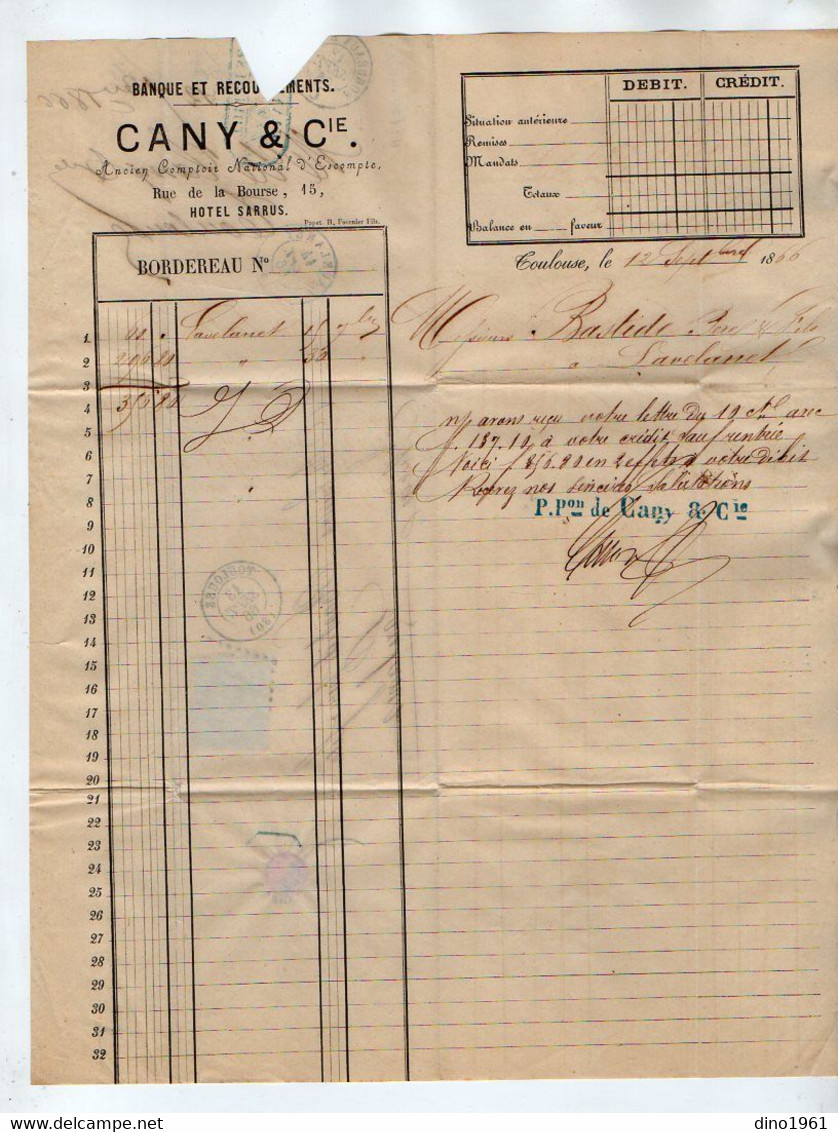 BANQUE ET RECOUVREMENTS.
CANY & CIE.
Ancien Comptoir National d'Escompte,
Rue de la Bourse, 15,
HOTEL SARRUS.
Papet. H. Fournier Fils.
DEBIT. CRÉDIT.
Situation antérieure
Remises
Mandats
Totaux
Balance en faveur
Toulouse, le 12 Septbre 1866
BORDEREAU No
Messieurs Bastide Père & Fils
à Lavelanet
1 Lavelanet 15 7bre
2 " "
3
4
5
6
7
8
9
10
11
12
13
14
15
16
17
18
19
20
21
22
23
24
25
26
27
28
29
30
31
32
avons reçu votre lettre du 10 ct avec
f. 187.10 à votre crédit sauf rentrée
Voici f 356.80 en 2 effets à votre débit
Recevez nos sincères salutations
P. Pon de Cany & Cie
TOULOUSE
dino1961